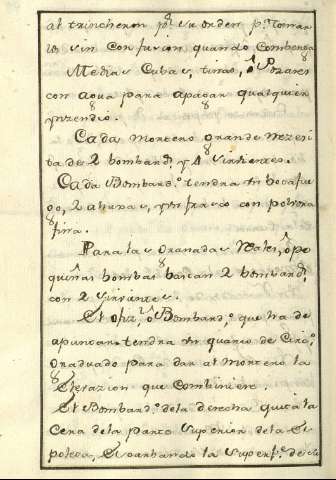 al trincheron pª su orden pª tomar
los sin confucion, quando combenga
Medias Cubas, tinas, ô Pozares
con agua para apagar qualquier
ynzendio.
Cada Mortero grande nezesi
ta de 2 bombardˢ y 4 sirvientes.
Cada Bombardº tendra su botafue
go, 2 abujas, y un frasco con polvora
fina.
Para las Granadas Reales, ô pe
queñas bombas bastan 2 bombardˢ
con 2 sirvientes.
El ofizˡ ô Bombardº que ha de
apuntar tendra su quarto de circº
graduado para dar al Mortero la
Elevazion que combiniere.
El Bombardº de la derecha quita la
Cera de la parte superior de la Es
poleta, Escarbando la superfˢ de la